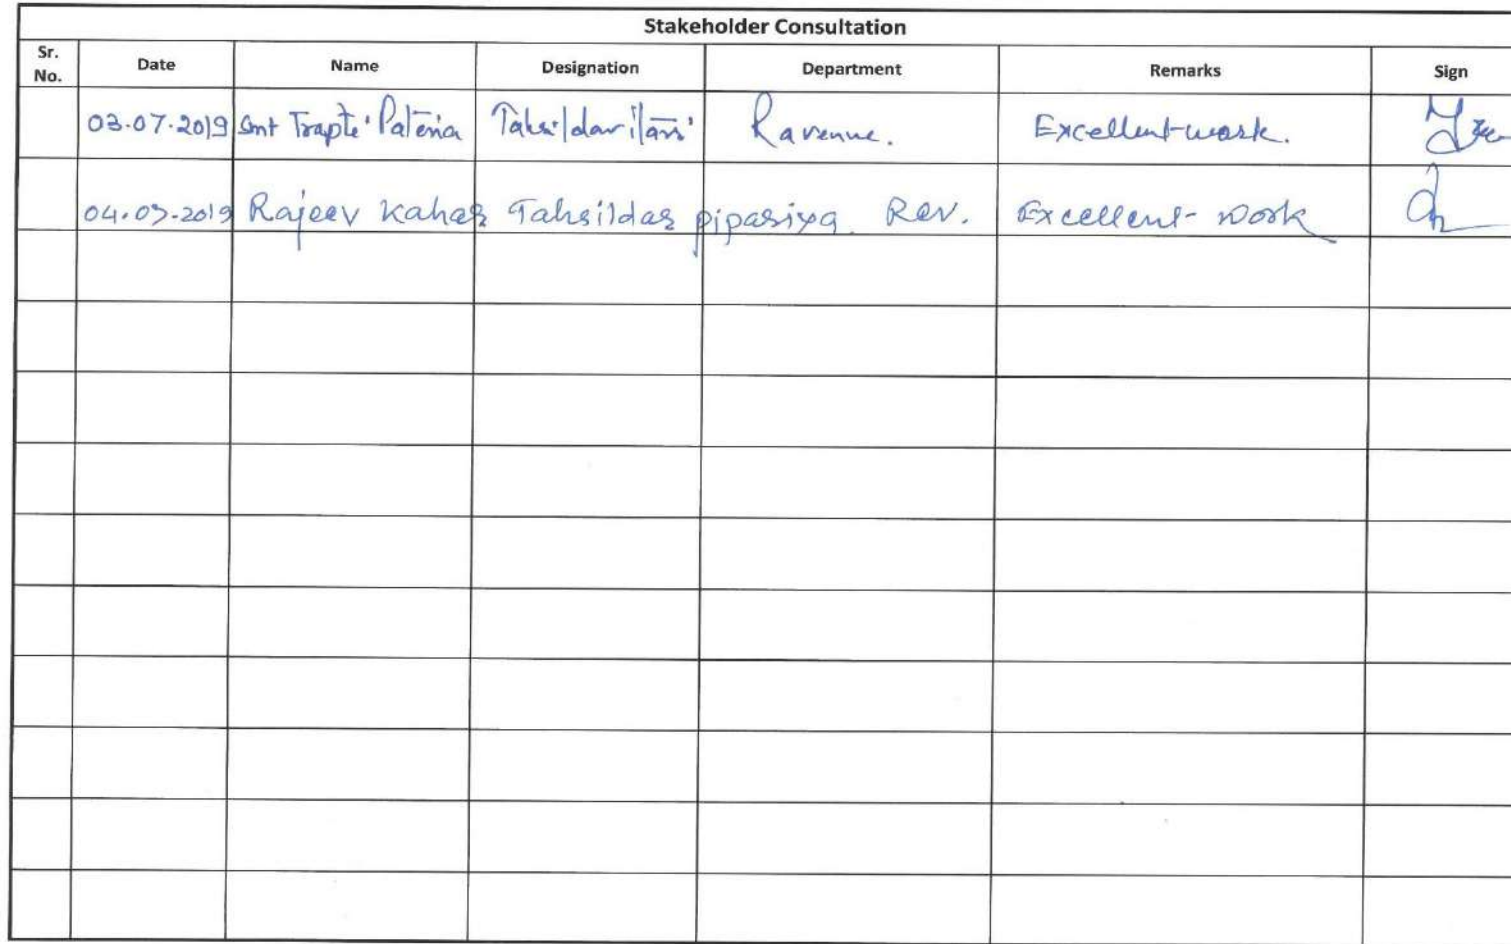 Stakeholder Consultation
Sr. No. Date Name Designation Department Remarks Sign
03.07.2019 Smt Trapte Patenia Tahsildar Ravenue. Excellent work.
04.07.2019 Rajeev Kahar Tahsildar pipariya Rev. Excellent work